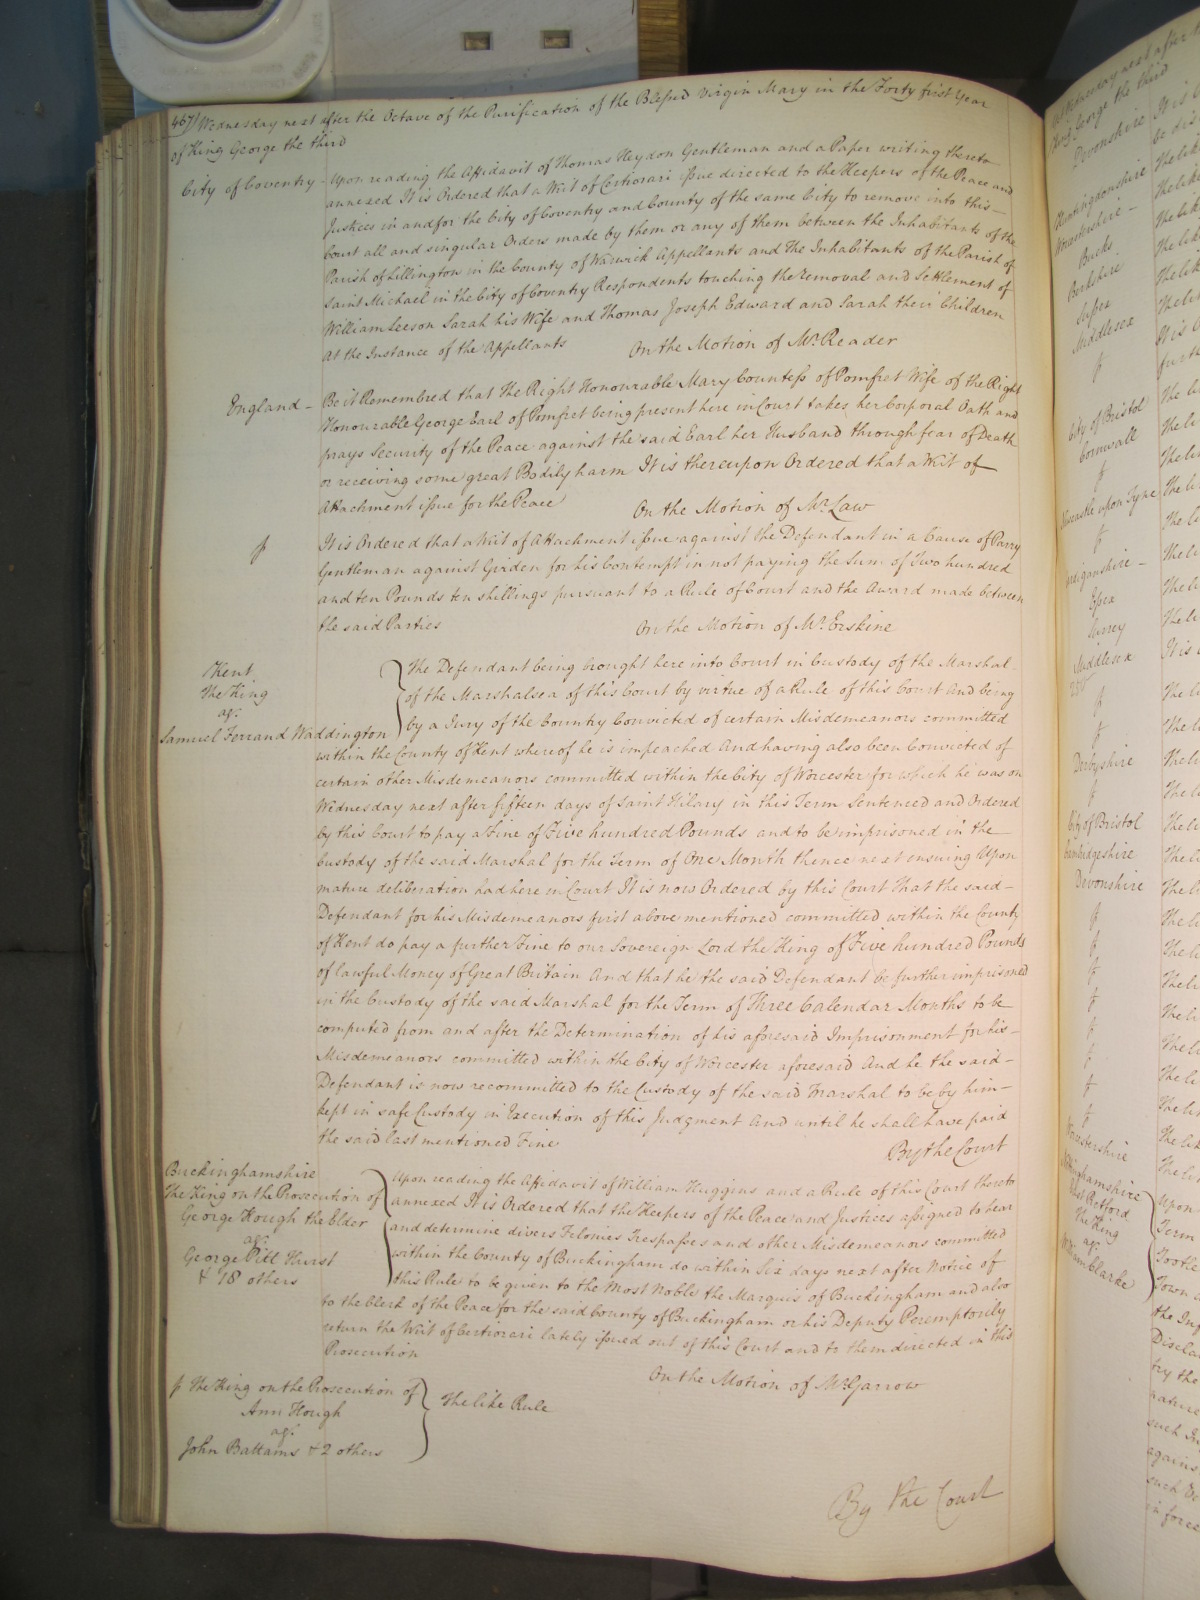 467 Wednesday next after the Octave of the Purification of the Blessed Virgin Mary in the Forty first Year
of King George the third
City of Coventry - Upon reading the Affidavit of Thomas Heydon Gentleman and a Paper writing thereto
annexed It is Ordered that a Writ of Certiorari issue directed to the Keepers of the Peace and
Justices in and for the City of Coventry and County of the same City to remove into this
Court all and singular Orders made by them or any of them between the Inhabitants of the
Parish of Lillington in the County of Warwick Appellants and The Inhabitants of the Parish of
Saint Michael in the City of Coventry Respondents touching the Removal and Settlement of
William Leeson Sarah his Wife and Thomas Joseph Edward and Sarah their Children
At the Instance of the Appellants On the Motion of Mr. Reader
England - Be it Remembred that The Right Honourable Mary Countess of Pomfret Wife of the Right
Honourable George Earl of Pomfret being present here in Court takes her Corporal Oath and
prays Security of the Peace against the said Earl her Husband through fear of Death
or receiving some great Bodily harm It is thereupon Ordered that a Writ of
Attachment issue for the Peace On the Motion of Mr. Law
It is Ordered that a Writ of Attachment issue against the Defendant in a Cause of Parry
Gentleman against Girden for his Contempt in not paying the Sum of Two hundred
and ten Pounds ten shillings pursuant to a Rule of Court and the Award made between
the said Parties On the Motion of Mr. Erskine
Kent
The King
agt.
Samuel Ferrand Waddington
The Defendant being brought here into Court in Custody of the Marshal
of the Marshalsea of this Court by virtue of a Rule of this Court And being
by a Jury of the Country Convicted of certain Misdemeanors committed
within the County of Kent whereof he is impeached And having also been Convicted of
certain other Misdemeanors committed within the City of Worcester for which he was on
Wednesday next after fifteen days of Saint Hilary in this Term Sentenced and Ordered
by this Court to pay a Fine of Five hundred Pounds and to be imprisoned in the
Custody of the said Marshal for the Term of One Month thence next ensuing Upon
mature deliberation had here in Court It is now Ordered by this Court That the said
Defendant for his Misdemeanors first above mentioned committed within the County
of Kent do pay a further Fine to our Sovereign Lord the King of Five hundred Pounds
of lawful Money of Great Britain And that he the said Defendant be further imprisoned
in the Custody of the said Marshal for the Term of Three Calendar Months to be
computed from and after the Determination of his aforesaid Imprisonment for his
Misdemeanors committed within the City of Worcester aforesaid And he the said
Defendant is now recommitted to the Custody of the said Marshal to be by him
kept in safe Custody in Execution of this Judgment And until he shall have paid
the said last mentioned Fine By the Court
Buckinghamshire
The King on the Prosecution of
George Hough the Elder
agt.
George Pitt Hurst
& 18 others
Upon reading the Affidavit of William Huggins and a Rule of this Court thereto
annexed It is Ordered that the Keepers of the Peace and Justices assigned to hear
and determine divers Felonies Trespasses and other Misdemeanors committed
within the County of Buckingham do within Six days next after Notice of
this Rule to be given to the Most Noble the Marquis of Buckingham and also
to the Clerk of the Peace for the said County of Buckingham or his Deputy Peremptorily
return the Writ of Certiorari lately issued out of this Court and to them directed in this
Prosecution
On the Motion of Mr. Garrow
The King on the Prosecution of
Ann Hough
agt.
John Battams & 2 others
The like Rule
By the Court
Devonshire
Huntingdonshire
Bucks
Berkshire
Sussex
Middlesex
City of Bristol
Cornwall
Newcastle upon Tyne
Cardiganshire
Essex
Surrey
Middlesex
Derbyshire
City of Bristol
Cambridgeshire
Devonshire
Worcestershire
The King
agt.
William Clarke